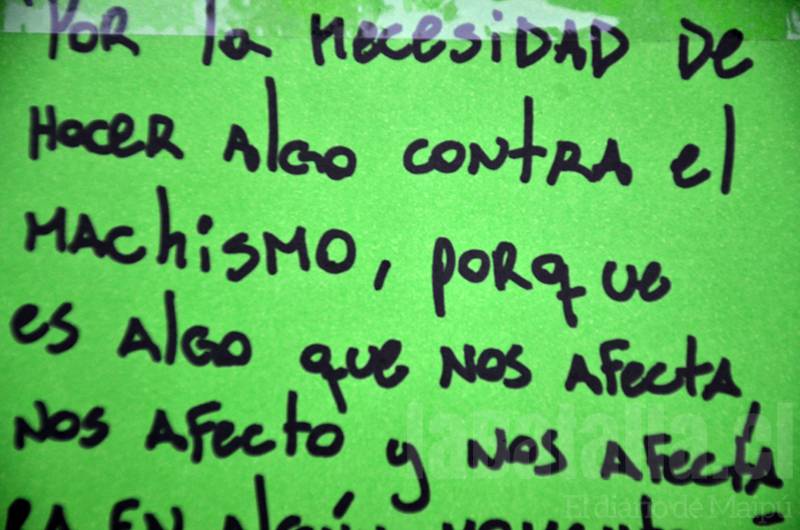 Por la necesidad de
hacer algo contra el
machismo, porque
es algo que nos afecta,
nos afectó y nos afecta
ra en algún momento
labatalla.cl
El diario de Maipú